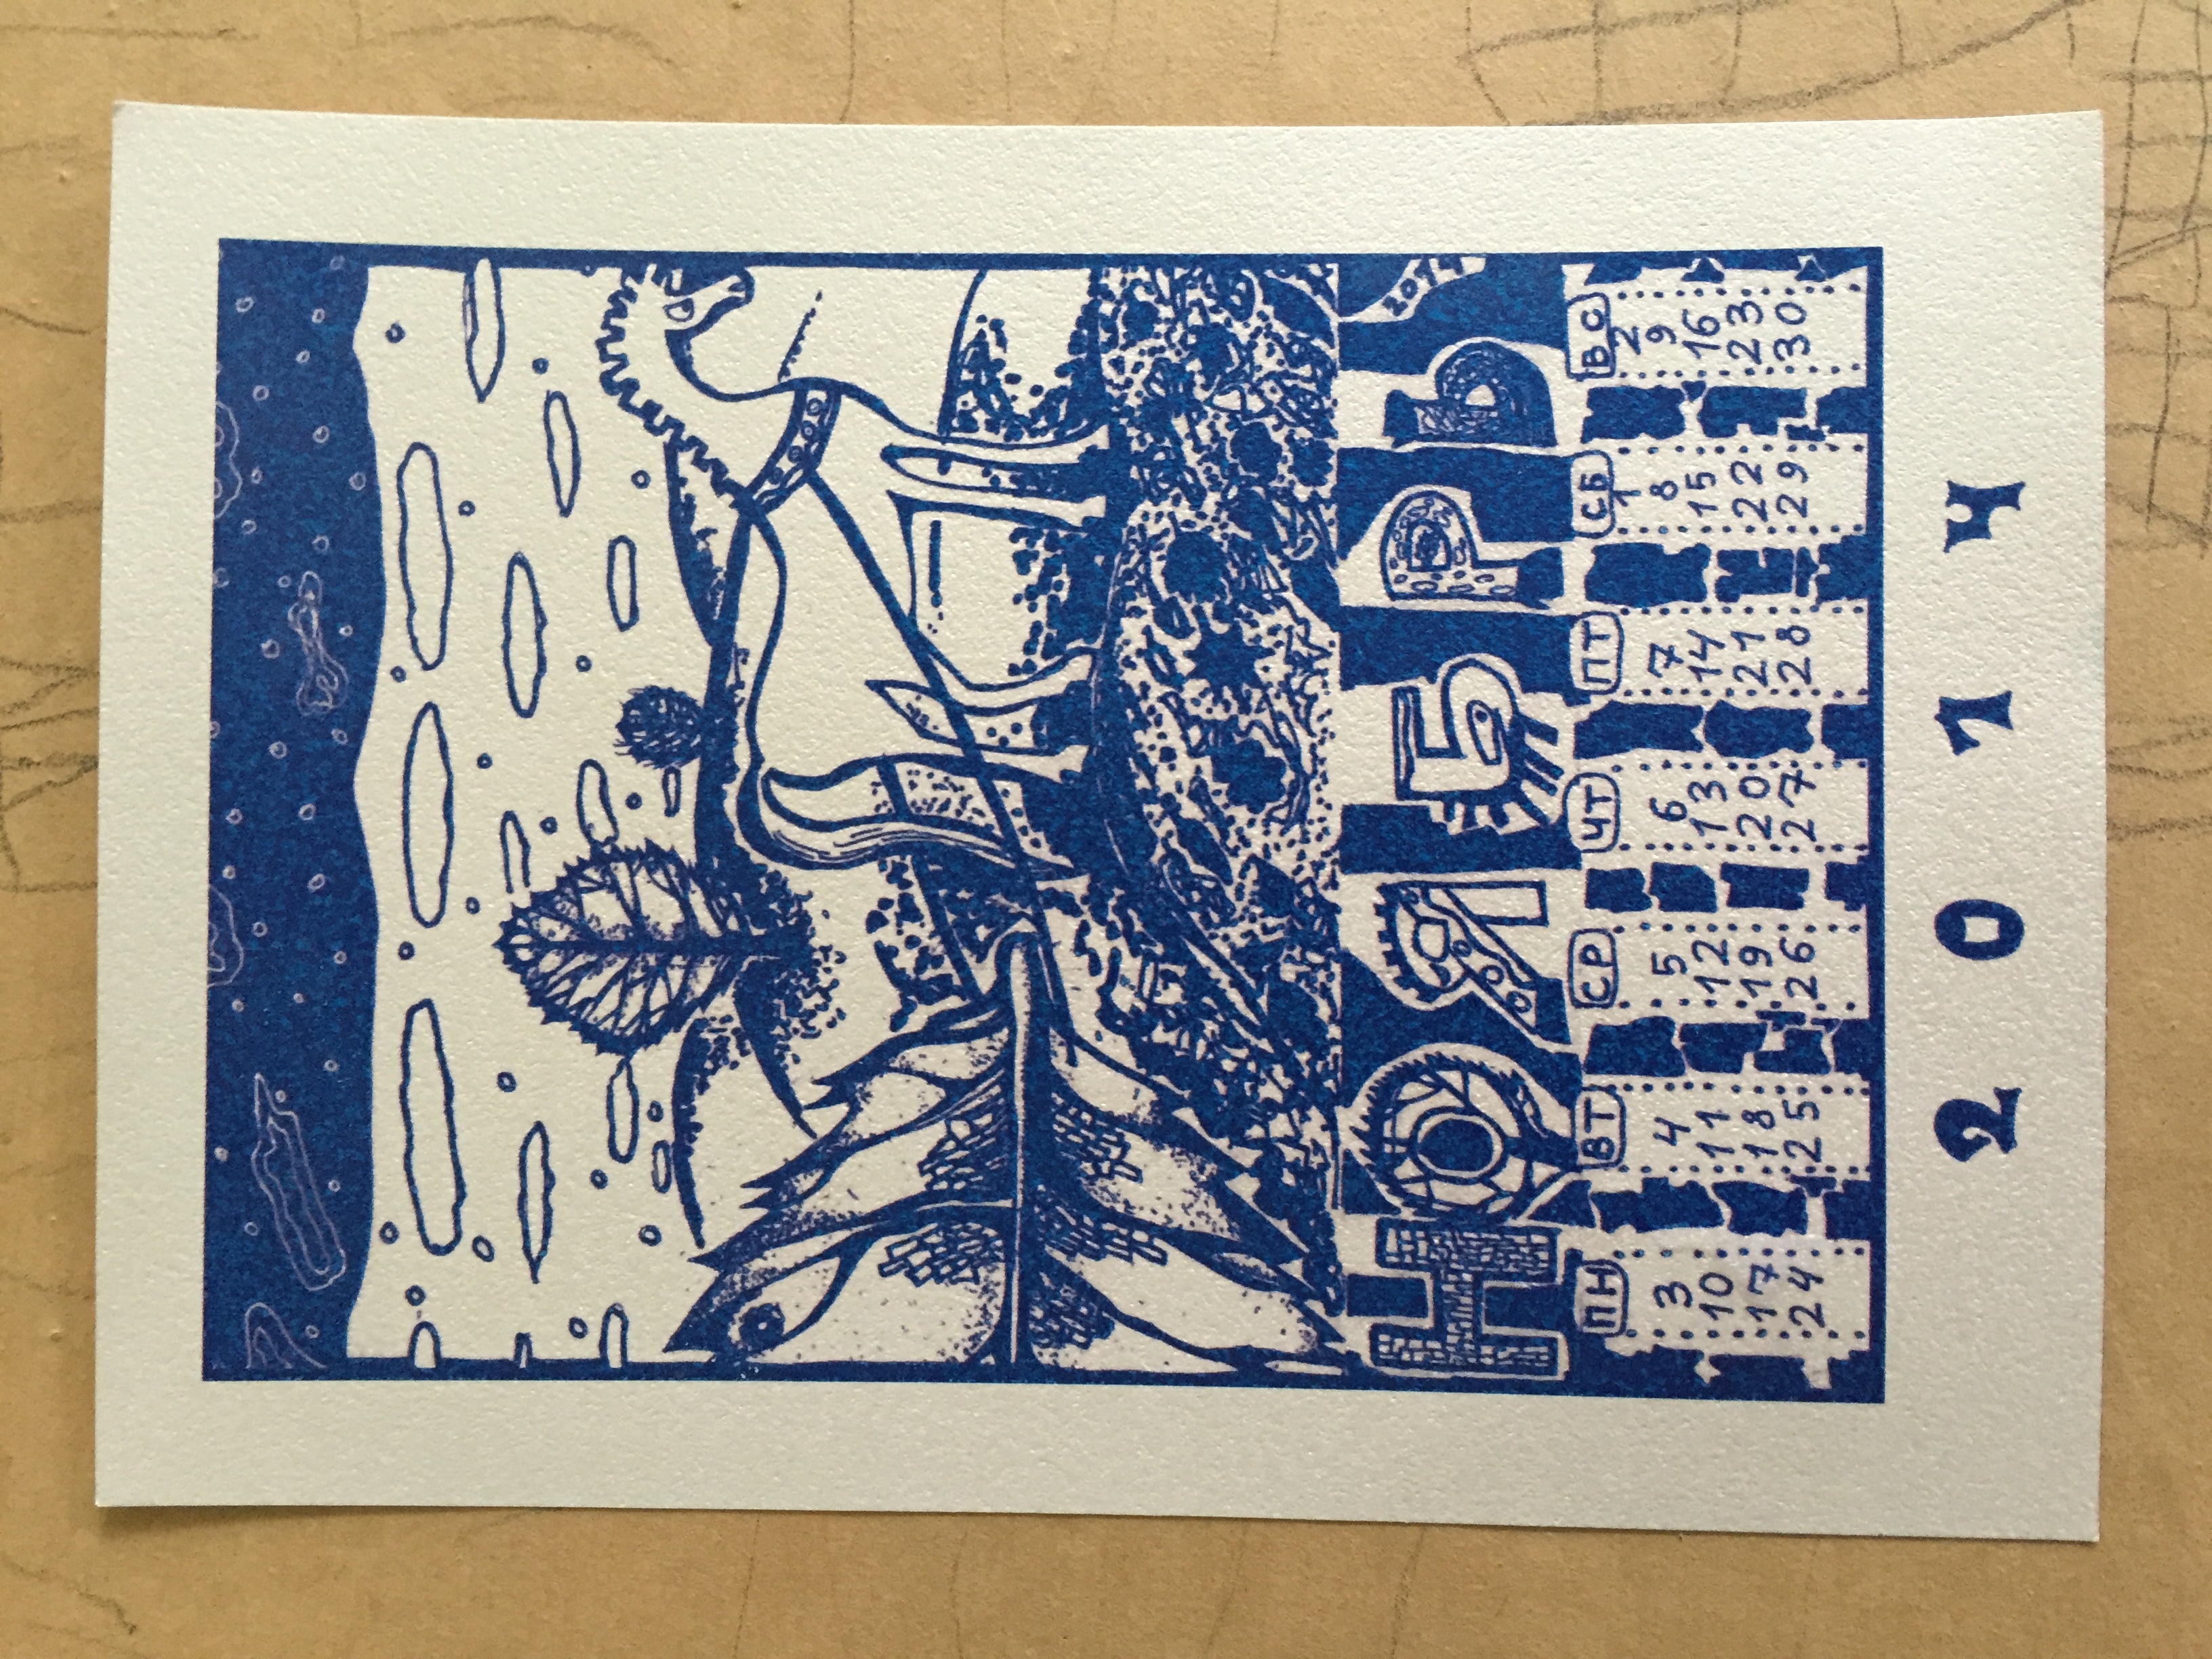 НОЯБРЬ 2014
ПН ВТ СР ЧТ ПТ СБ ВС
1 2
3 4 5 6 7 8 9
10 11 12 13 14 15 16
17 18 19 20 21 22 23
24 25 26 27 28 29 30
2014